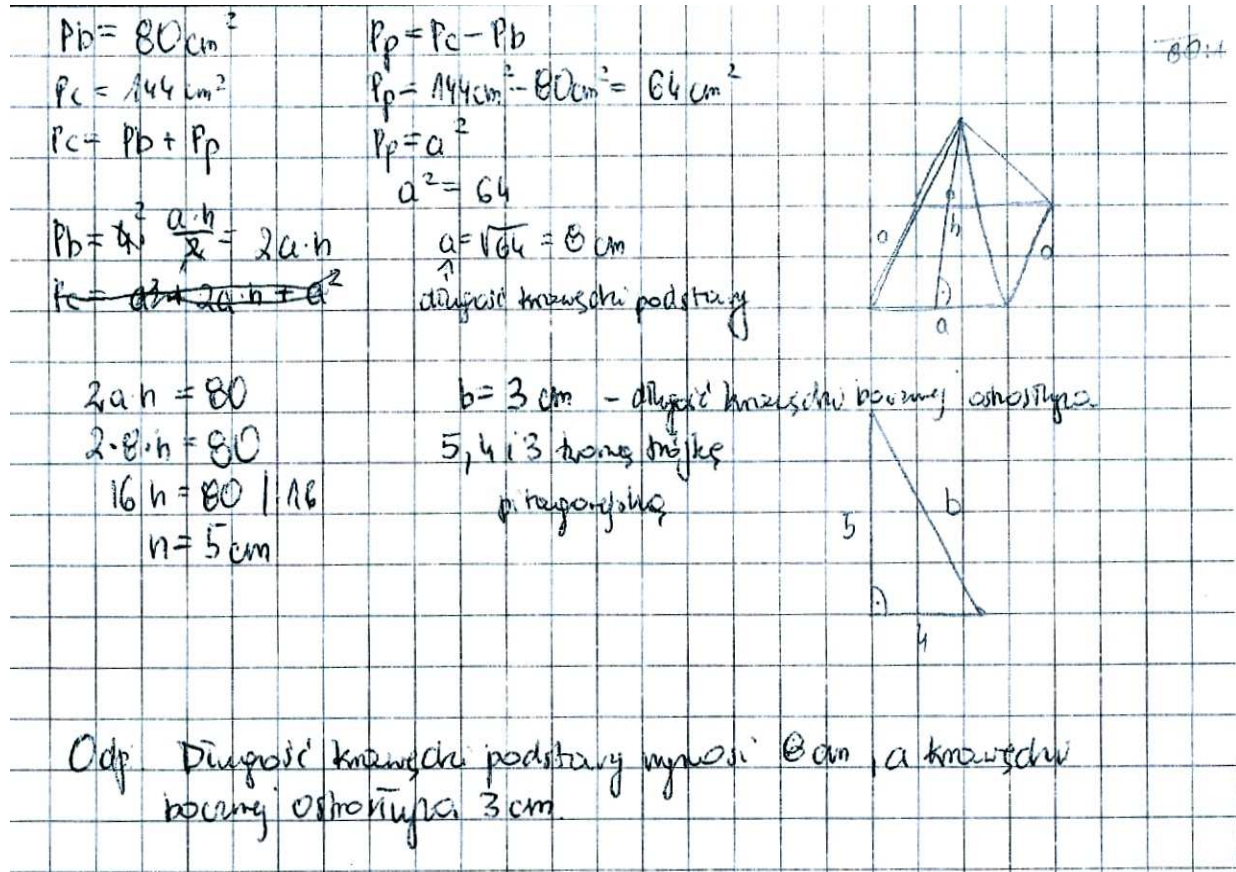 Pb = 80 cm²
Pc = 144 cm²
Pc = Pb + Pp
Pb = 4² a·h/2 = 2a·h
Pc = a² + 2a·h + a²
2a h = 80
2·8·h = 80
16 h = 80 | 16
h = 5 cm
Pp = Pc - Pb
Pp = 144 cm² - 80 cm² = 64 cm²
Pp = a²
a² = 64
a = √64 = 8 cm
↑
długość krawędzi podstawy
b = 3 cm - długość krawędzi bocznej ostrosłupa
5, 4 i 3 tworzą trójkę
pitagorejską
a
h
a
a
5
b
4
Odp. Długość krawędzi podstawy wynosi 8 cm, a krawędzi
bocznej ostrosłupa 3 cm.